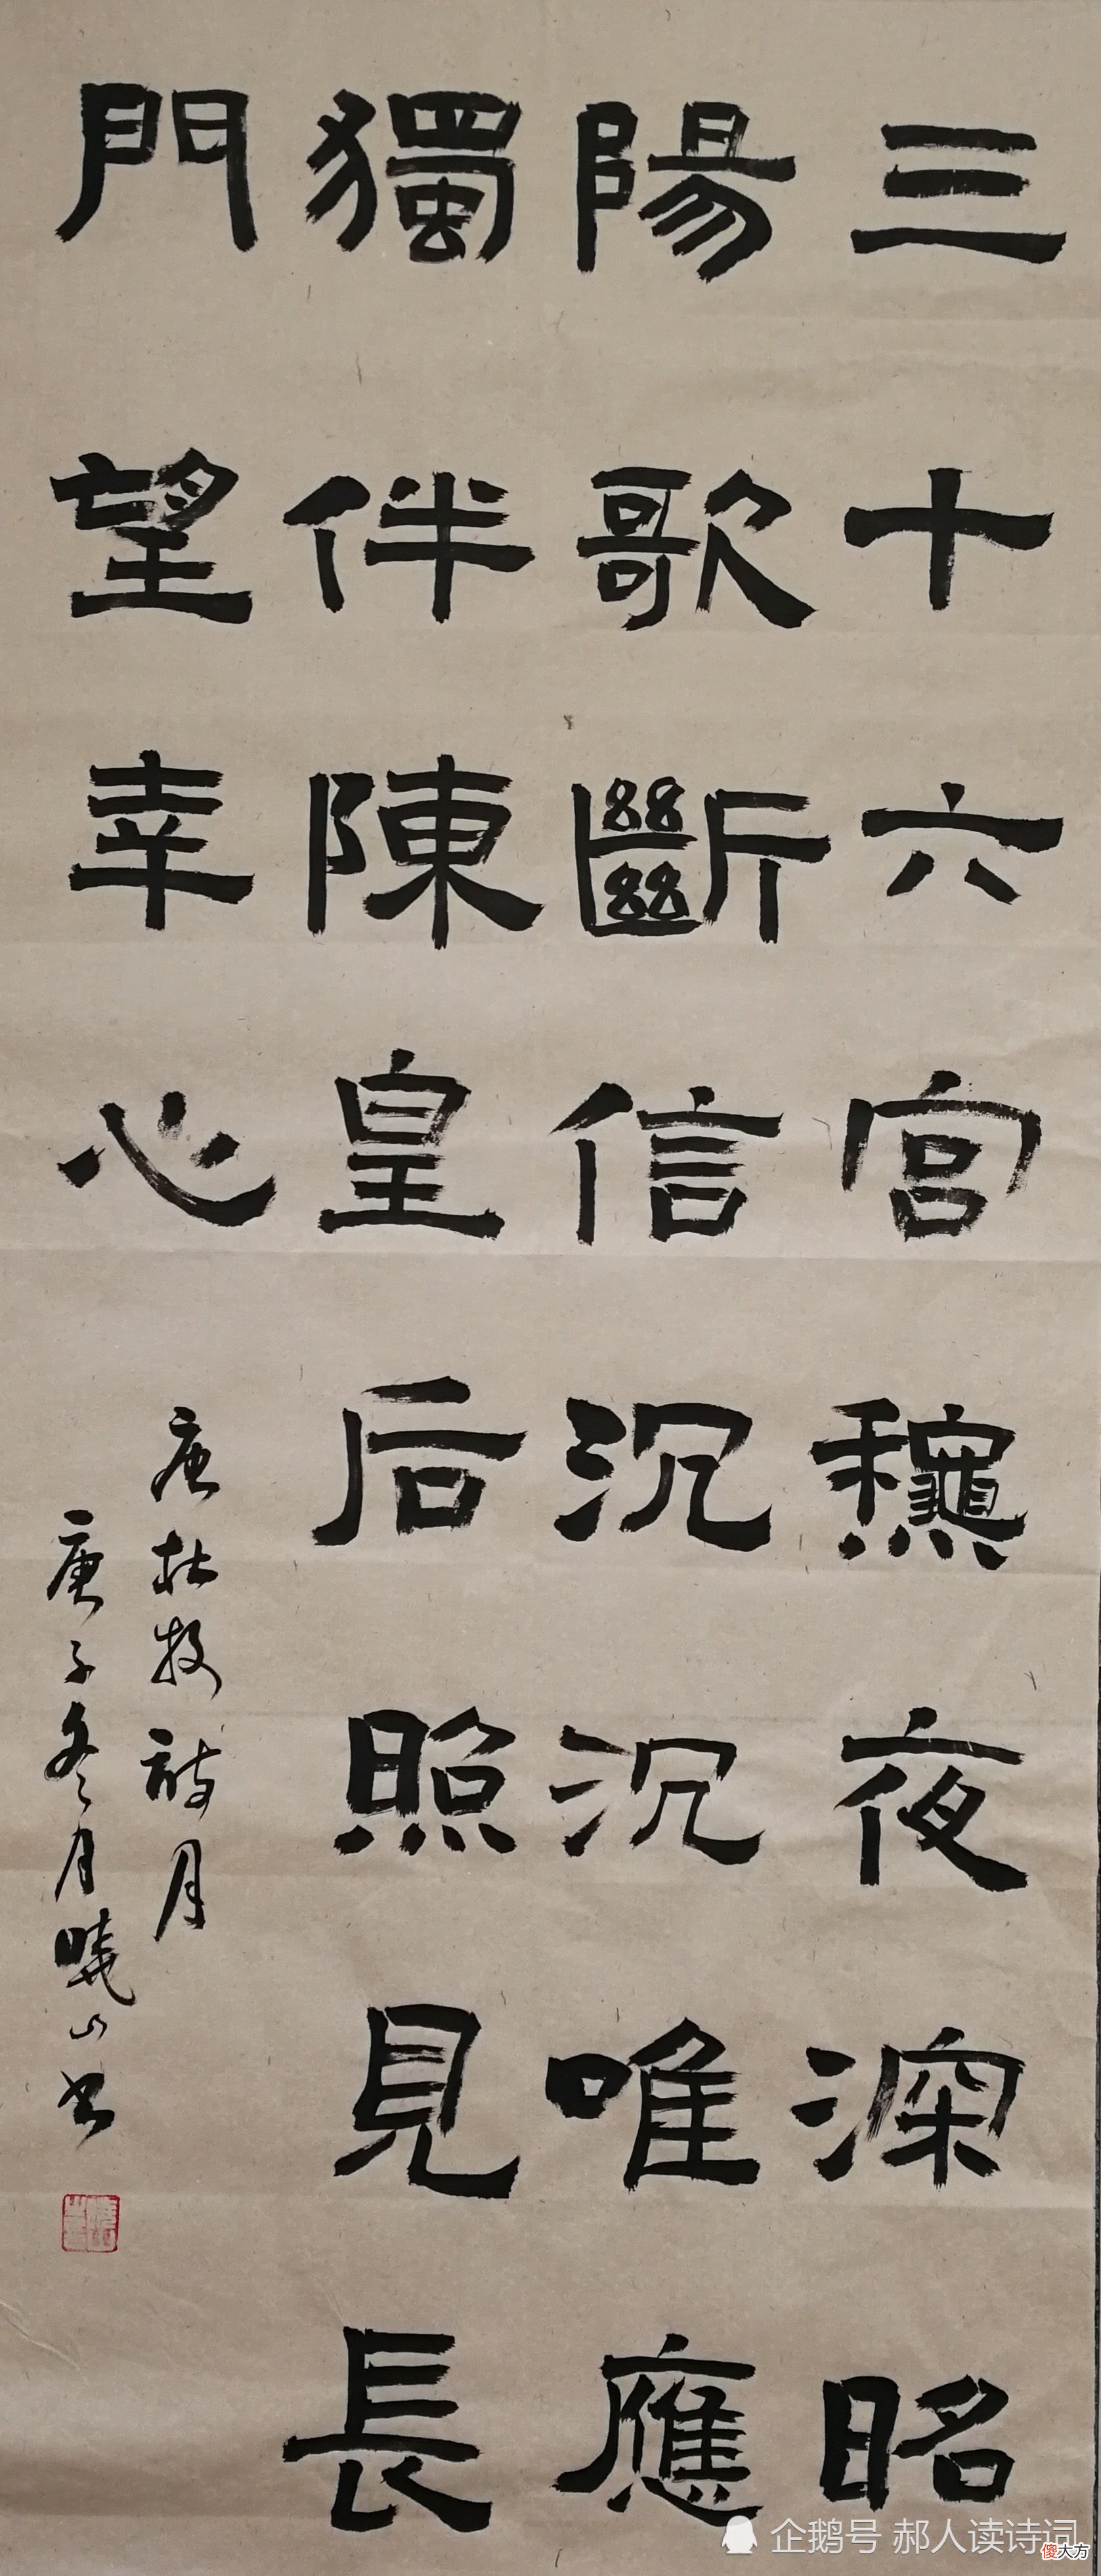 三十六宫龝夜深昭
陽歌斷信沉沉唯應
獨伴陳皇后照見長
門望幸心
唐杜牧詩月
庚子冬月曉山書
企鹅号 郝人读诗词
傻大方